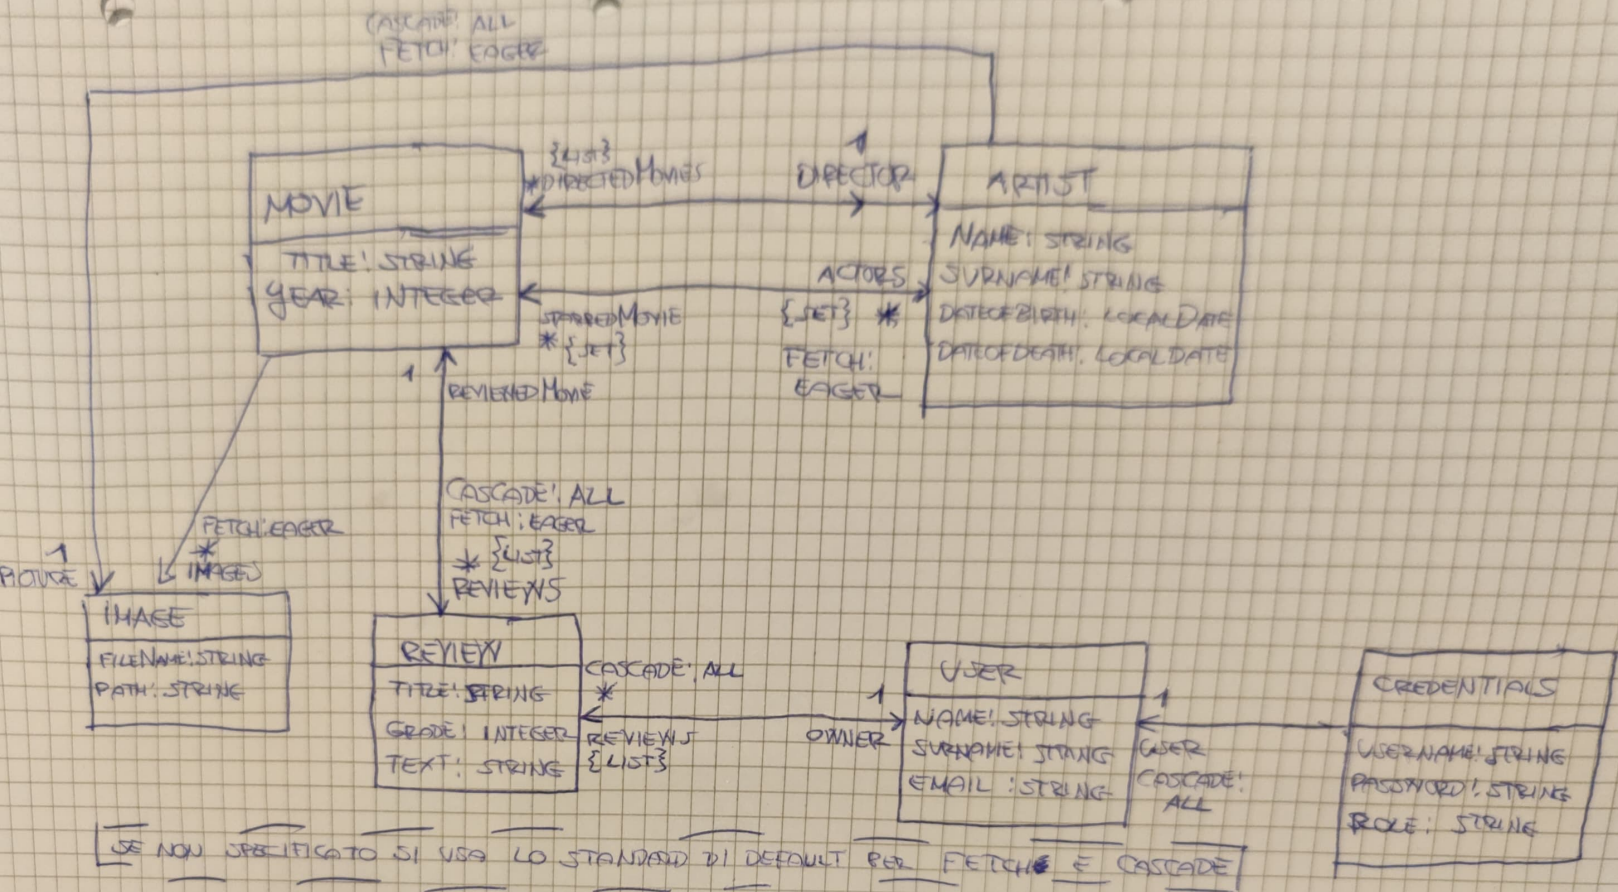 CASCADE: ALL
FETCH: EAGER
MOVIE
TITLE: STRING
YEAR: INTEGER
{LIST}
*DIRECTEDMOVIES
1
DIRECTOR
ARTIST
NAME: STRING
SURNAME: STRING
DATEOFBIRTH: LOCALDATE
DATEOFDEATH: LOCALDATE
ACTORS
{SET} *
FETCH:
EAGER
STARREDMOVIE
* {SET}
1
REVIEWEDMOVIE
CASCADE: ALL
FETCH: EAGER
* {LIST}
REVIEWS
FETCH: EAGER
*
IMAGES
1
PICTURE
IMAGE
FILENAME: STRING
PATH: STRING
REVIEW
TITLE: STRING
GRADE: INTEGER
TEXT: STRING
CASCADE: ALL
*
REVIEWS
{LIST}
1
OWNER
USER
NAME: STRING
SURNAME: STRING
EMAIL: STRING
1
USER
CASCADE:
ALL
CREDENTIALS
USERNAME: STRING
PASSWORD: STRING
ROLE: STRING
SE NON SPECIFICATO SI USA LO STANDARD DI DEFAULT PER FETCH E CASCADE